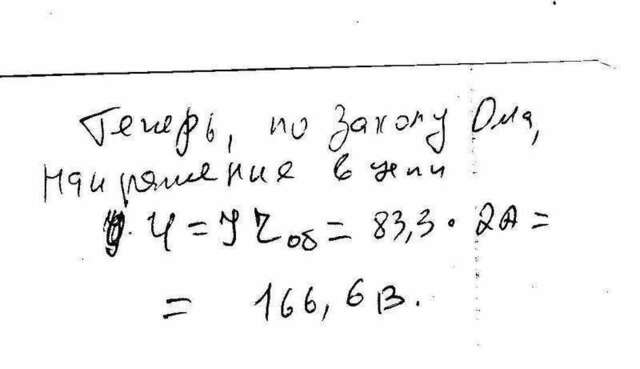 Теперь, по закону Ома,
напряжение в цепи
U = I Z об = 83,3 · 2А =
= 166,6 В.